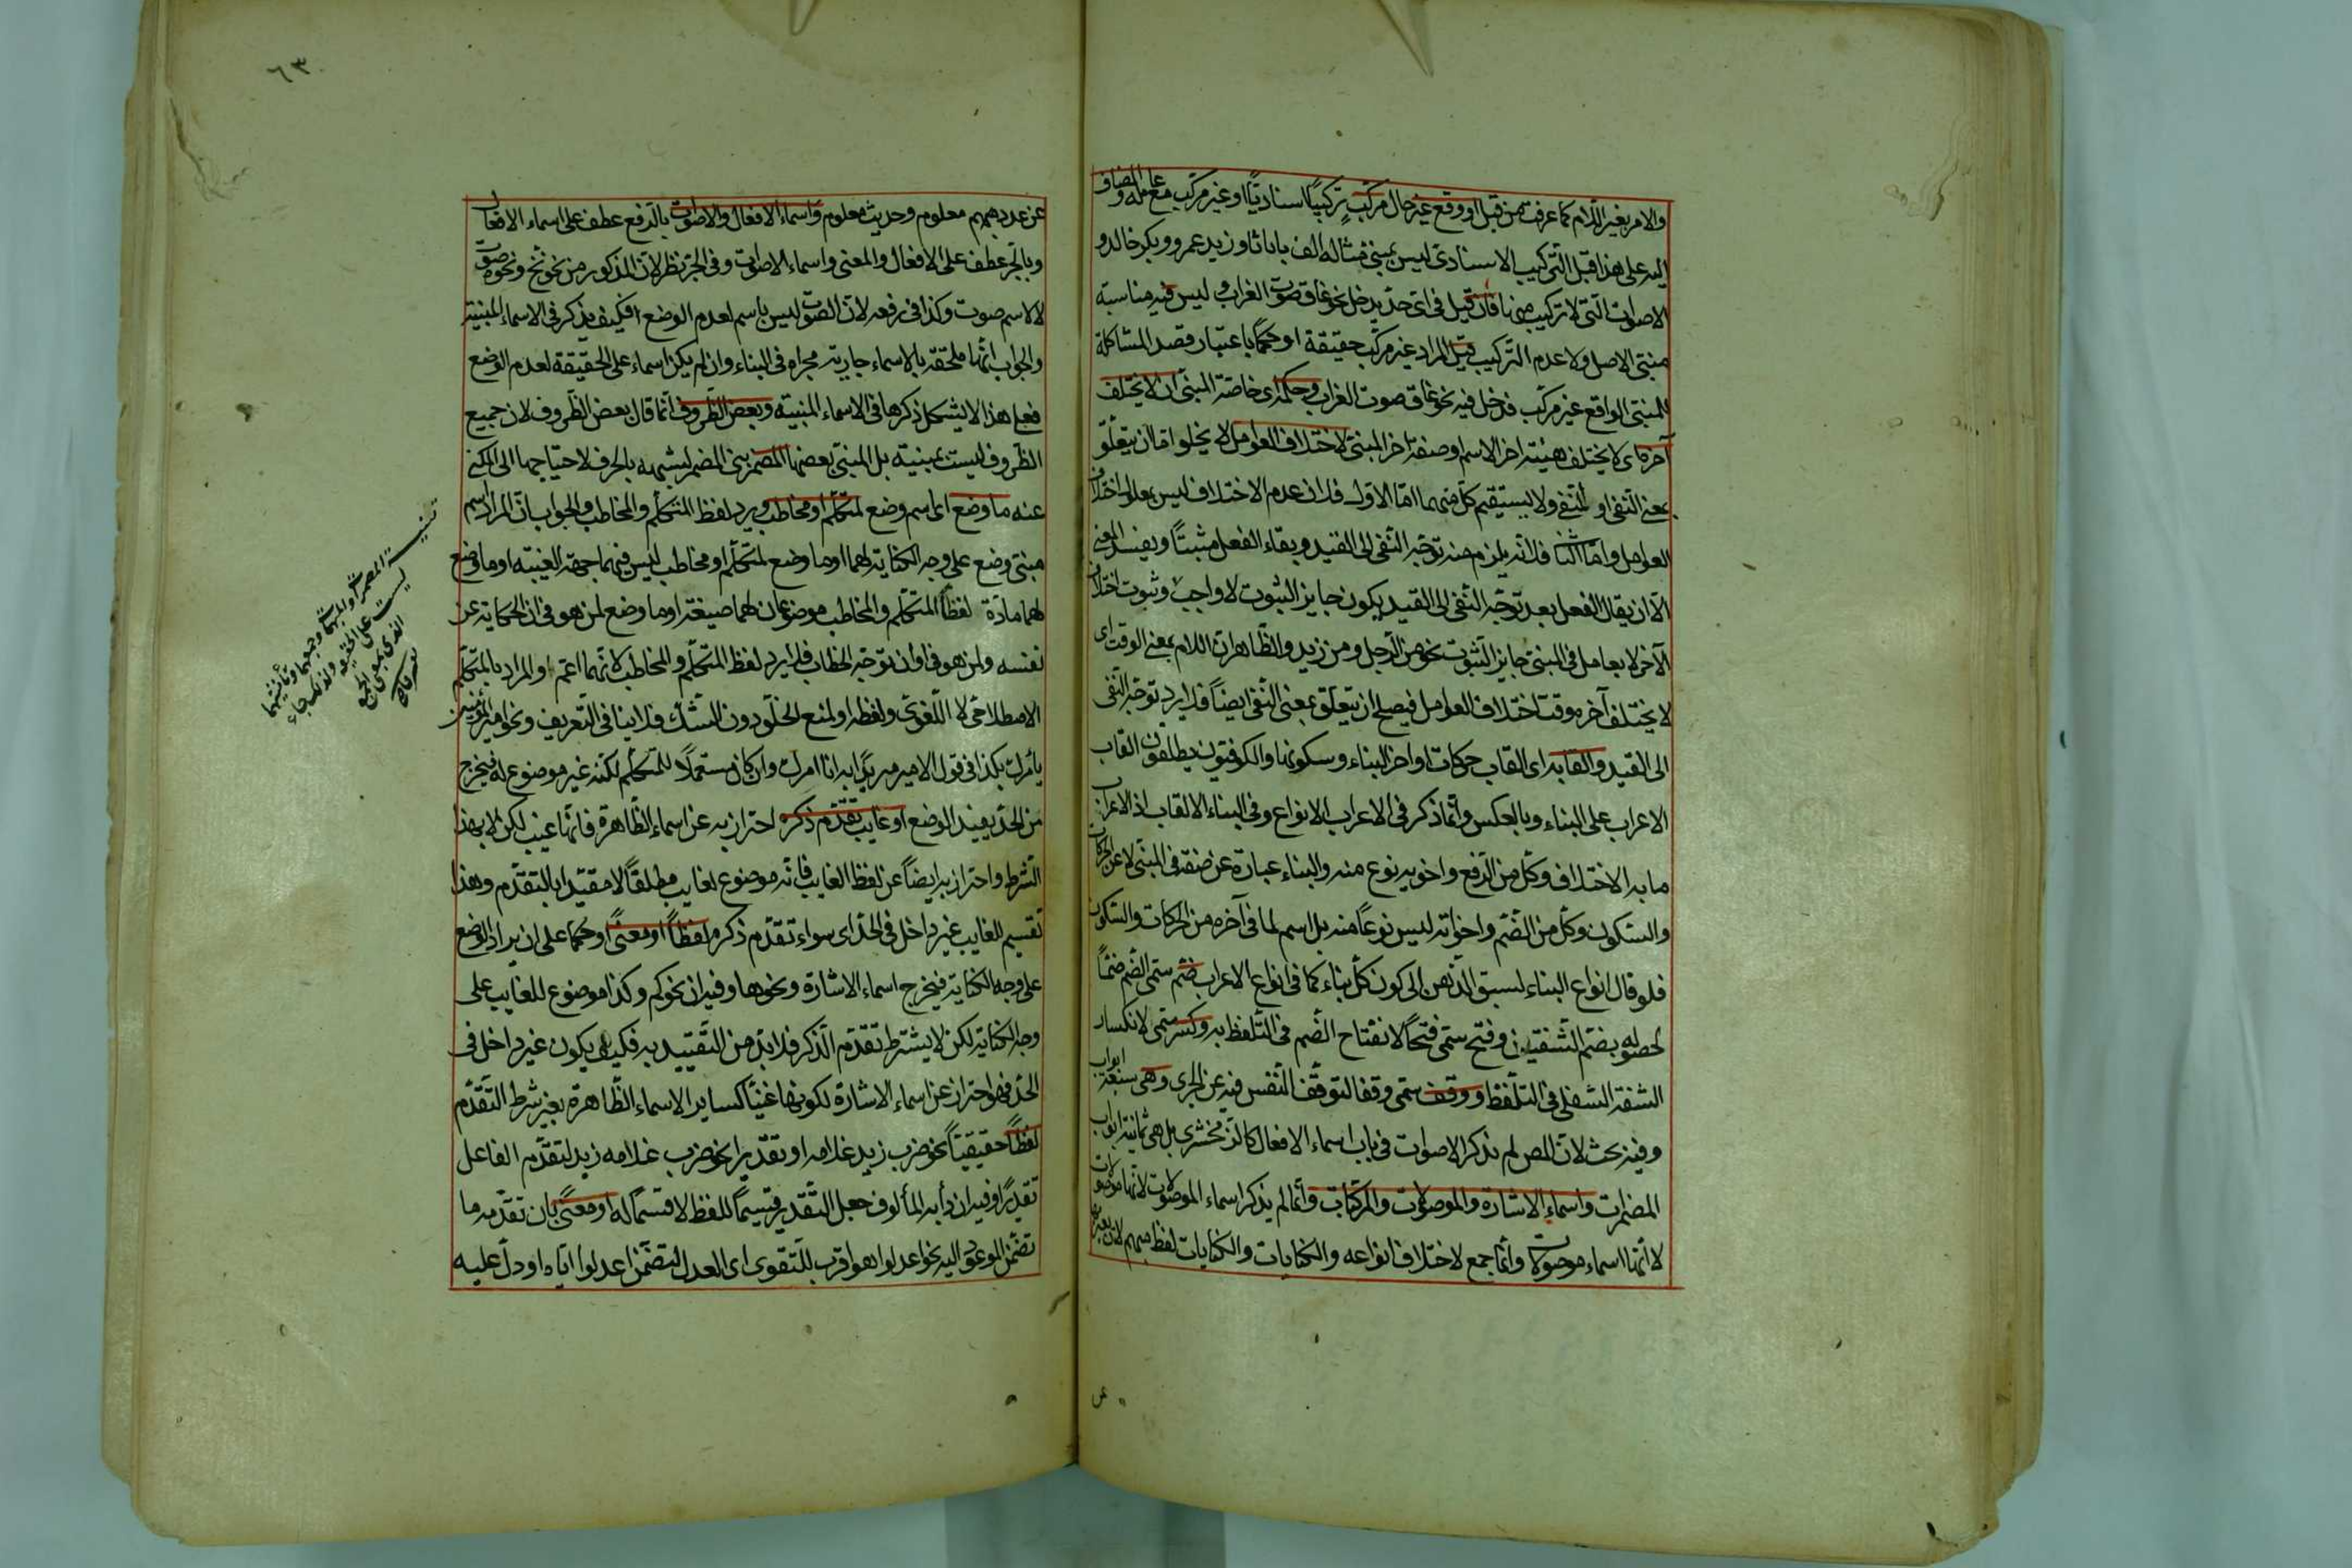 والامر بغير اللام كما عرفت من قبل او وقع غير حال مركب تركيبًا اسناديًّا او غير مركب مع عامله والمضاف
اليه على هذا قبل التركيب الاسنادى ليس بمبنى مثاله الف با تا ثا و زيد عمرو و بكر خالد و
الاصوات التى لا تركيب منها فان قيل فى اى حد يدخل نحو غاق صوت الغراب و ليس فيه مناسبة
مبنى الاصل ولا عدم التركيب قيل المراد غير مركب حقيقة او حكمًا باعتبار قصد المشاكلة
للمبنى الواقع غير مركب فدخل فيه نحو غاق صوت الغراب وحكمه اى خاصة المبنى ان لا يختلف
آخره اى لا يختلف هيئته اخر الاسم وصفة اخر المبنى لاختلاف العوامل لا يخلو اما ان يتعلق
بمعنى النفى او المنفى ولا يستقيم كل منهما اما الاول فلان عدم الاختلاف ليس بعلة اختلاف
العوامل واما الثانى فلانه يلزم منه توجه النفى الى القيد وبقاء الفعل مثبتًا ويفسد المعنى
الا ان يقال الفعل بعد توجه النفى الى القيد يكون جايز الثبوت لا واجب وثبوت اختلاف
الآخر لا بعامل فى المبنى جايز الثبوت نحو من الرجل ومن زيد والظاهر ان اللام بمعنى الوقت اى
لا يختلف آخره وقت اختلاف العوامل فيصلح ان يتعلق بمعنى النفى ايضًا فلا يرد توجه النفى
الى القيد والقابه اى القاب حركات اواخر البناء وسكونها والكوفيون يطلقون القاب
الاعراب على البناء وبالعكس وانما ذكر فى الاعراب الانواع وفى البناء الالقاب اذ الاعراب
ما به الاختلاف وكل من الرفع واخويه نوع منه والبناء عبارة عن صفة فى المبنى لا عن الحركات
والسكون وكل من الضم واخواته ليس نوعًا منه بل اسم لما فى آخره من الحركات والسكون
فلو قال انواع البناء لسبق الذهن الى كون كل بناء كما فى انواع الاعراب ضم سمى الضم ضمًّا
لحصوله بضم الشفتين وفتح سمى فتحًا لانفتاح الضم فى التلفظ به وكسر سمى لانكسار
الشفة السفلى فى التلفظ ووقف سمى وقفا لتوقف النفس فيه عن الجرى وهى سبعة ابواب
وفيه بحث لان المص لم يذكر الاصوات فى باب اسماء الافعال كالزمخشرى بل هى ثمانية ابواب
المضمرات واسماء الاشارة والموصولات والمركبات وانما لم يذكر اسماء الموصولات لانها موصولات
لا انها اسماء موصولات وانما جمع لاختلاف انواعه والكنايات والكنايات لفظ مبهم لان يعبر بها
٦٣
عن عدد مبهم معلوم وحديث معلوم واسماء الافعال والاصوات بالرفع عطف على اسماء الافعال
وبالجر عطف على الافعال والمعنى واسماء الاصوات وفى الجر نظر لان المذكور من نحو نخ ونحوه صوت
لا اسم صوت وكذا فى رفعه لان الصوت ليس باسم لعدم الوضع فكيف يذكر فى الاسماء المبنية
والجواب انها ملحقة بالاسماء جارية مجراه فى البناء وان لم يكن اسماء على الحقيقة لعدم الوضع
فعلى هذا لا يشكل ذكرها فى الاسماء المبنية وبعض الظروف انما قال بعض الظروف لان جميع
الظروف ليست بمبنية بل المبنى بعضها المضمر بنى المضمر لشبهه بالحرف لاحتياجها الى المكنى
عنه ما وضع اى اسم وضع لمتكلم او مخاطب ويرد لفظ المتكلم والمخاطب والجواب ان المراد اسم
مبنى وضع على وجه الكناية لهما او ما وضع لمتكلم او مخاطب ليس فيهما جهة الغيبة او ما وضع
لهما مادة لفظا المتكلم والمخاطب موضوعان لهما صيغة او ما وضع لمن هو فى ان الحكاية عن
نفسه ولمن هو فى اوان توجه الخطاب فلا يرد لفظ المتكلم والمخاطب لانهما اعم او المراد بالمتكلم
الاصطلاحى لا اللغوى ولفظه او لمنع الخلو دون الشك فلا ينافى التعريف ونحو امير المؤمنين
يأمرك بكذا فى قول الامير مريدًا به انا امرك وان كان مستعملًا للمتكلم لكنه غير موضوع له فيخرج
من الحد بقيد الوضع او غايب تقدم ذكره احتراز به عن اسماء الظاهرة فانها غيب لكن لا بهذا
الشرط واحتراز به ايضًا عن لفظ الغايب فانه موضوع لغايب مطلقًا لا مقيدا بالتقدم وهذا
تقسيم للغايب غير داخل فى الحد اى سواء تقدم ذكره لفظًا او معنًى او حكمًا على ان يراد الوضع
على وجه الكناية فيخرج اسماء الاشارة ونحوها وفيه ان نحو كم وكذا موضوع للغايب على
وجه الكناية لكن لا يشترط تقدم الذكر فلا بد من التقييد به فكيف يكون غير داخل فى
الحد فهو احتراز عن اسماء الاشارة لكونها غيبًا كساير الاسماء الظاهرة بغير شرط التقدم
لفظًا حقيقيًا نحو ضرب زيد غلامه او تقديرا نحو ضرب غلامه زيد لتقدم الفاعل
تقديرًا وفيه ان دأبه المألوف جعل التقدير قسيمًا للفظ لا قسمًا له او معنًى بان تقدمه ما
تضمن المرجوع اليه نحو اعدلوا هو اقرب للتقوى اى العدل لتضمن اعدلوا اياه او دل عليه